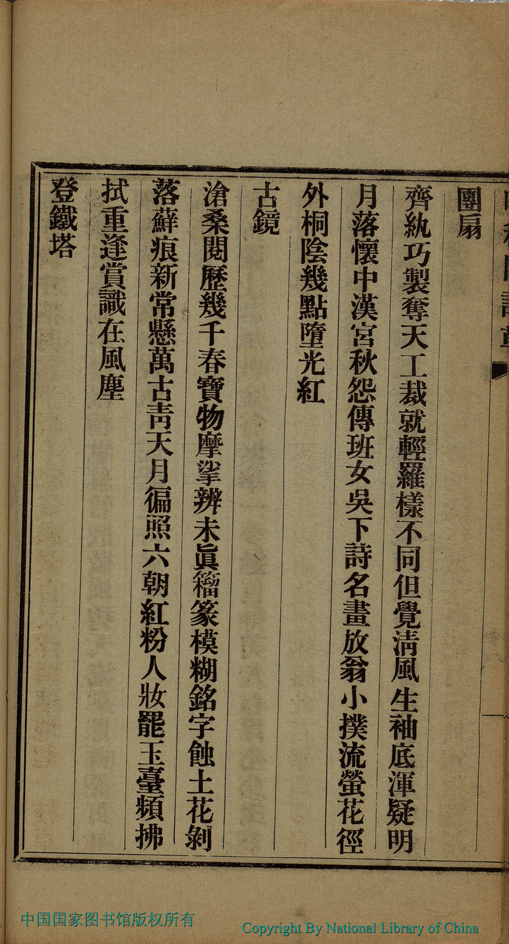 團扇
齊紈巧製奪天工裁就輕羅樣不同但覺清風生袖底渾疑明
月落懷中漢宮秋怨傳班女吳下詩名畫放翁小撲流螢花徑
外桐陰幾點墮光紅
古鏡
滄桑閱歷幾千春寶物摩挲辨未眞籀篆模糊銘字蝕土花剝
落蘚痕新常懸萬古靑天月徧照六朝紅粉人妝罷玉臺頻拂
拭重逢賞識在風塵
登鐵塔
中国国家图书馆版权所有
Copyright By National Library of China